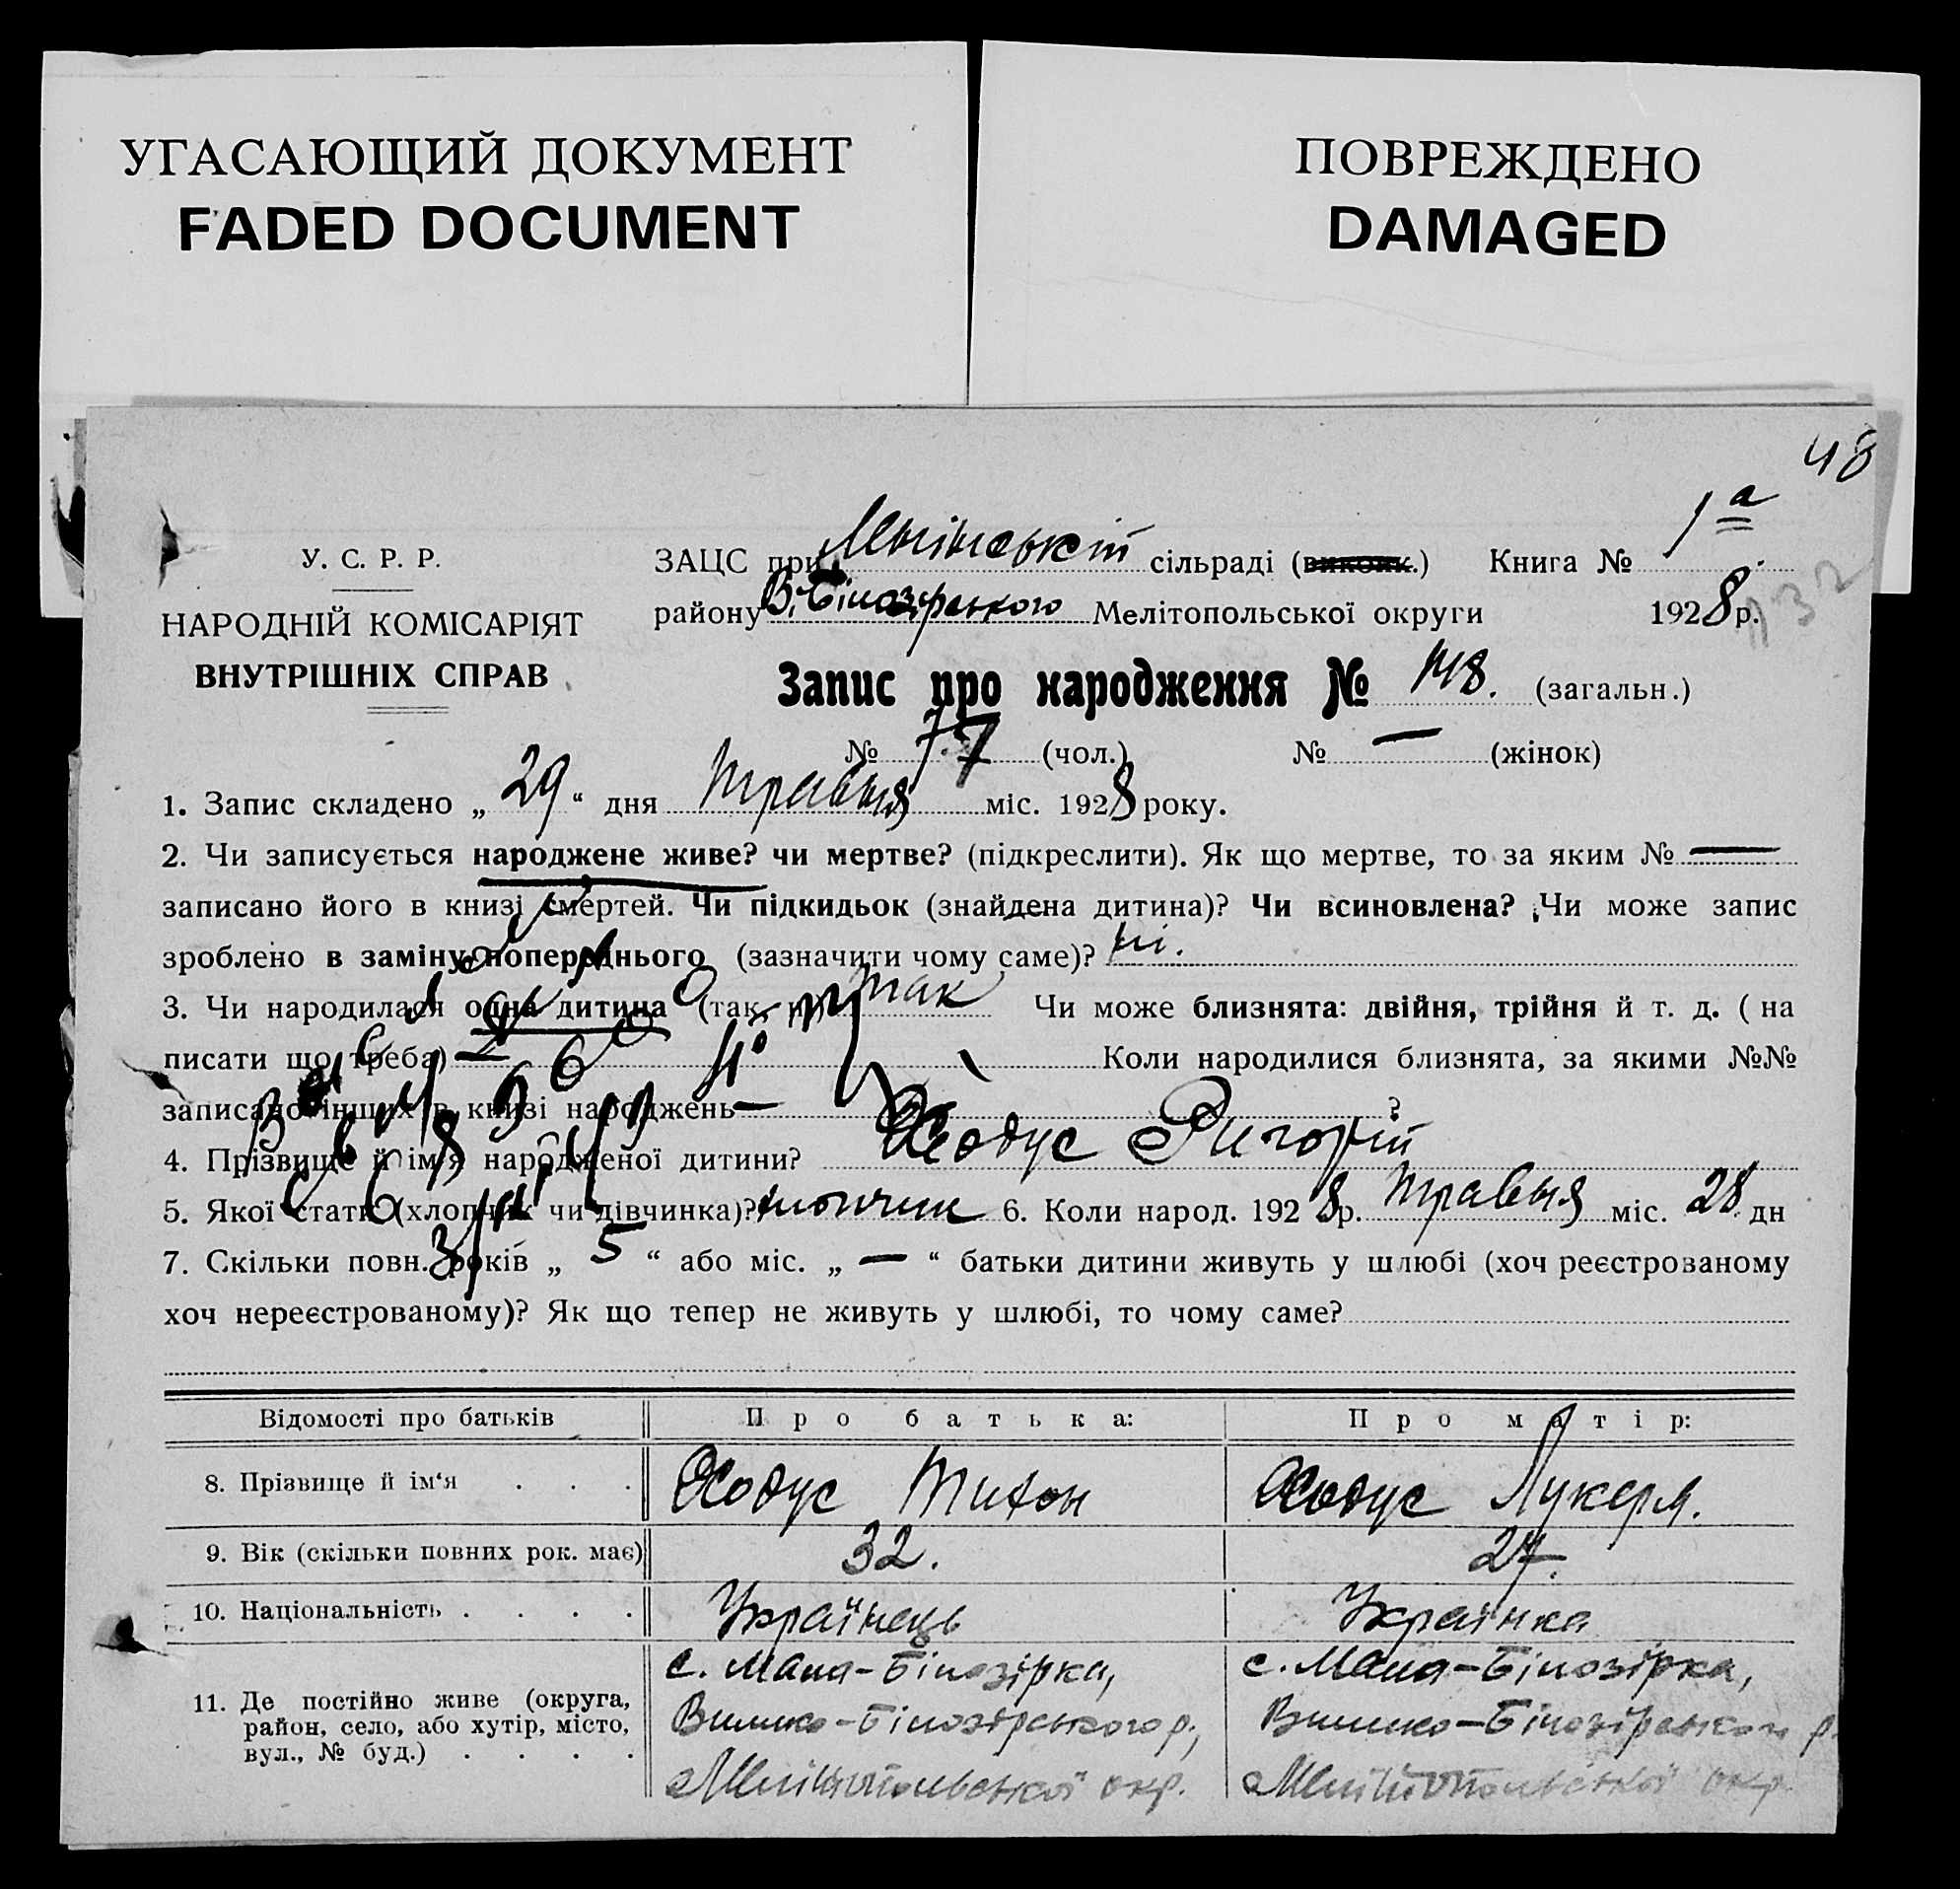 УГАСАЮЩИЙ ДОКУМЕНТ
FADED DOCUMENT
ПОВРЕЖДЕНО
DAMAGED
48
У. С. Р. Р.
НАРОДНІЙ КОМІСАРІЯТ
ВНУТРІШНІХ СПРАВ
ЗАЦС при сільраді (виконк.) Книга № 1а
району В. Білозірського Мелітопольської округи 1928 р.
1132
Запис про народження № 148. (загальн.)
№ 77 (чол.) № — (жінок)
1. Запис складено „ 29 “ дня травня міс. 1928 року.
2. Чи записується народжене живе? чи мертве? (підкреслити). Як що мертве, то за яким № —
записано його в книзі смертей. Чи підкидьок (знайдена дитина)? Чи всиновлена? Чи може запис
зроблено в заміну попереднього (зазначити чому саме)? ні.
3. Чи народилася одна дитина (так, ні) так Чи може близнята: двійня, трійня й т. д. ( на
писати що треба) — Коли народилися близнята, за якими №№
записано інших в книзі народжень — ?
4. Прізвище й ім'я народженої дитини? Ходус Григорій
5. Якої стати (хлопчик чи дівчинка)? хлопчик 6. Коли народ. 1928 р. травня міс. 28 дн
7. Скільки повн. років „ 5 “ або міс. „ — “ батьки дитини живуть у шлюбі (хоч реєстрованому
хоч нереєстрованому)? Як що тепер не живуть у шлюбі, то чому саме?
Відомості про батьків Про батька: Про матір:
8. Прізвище й ім'я . . . Ходус Тихон Ходус Лукеря.
9. Вік (скільки повних рок. має) 32. 27.
10. Національність . . . . Українець Українка
11. Де постійно живе (округа,
район, село, або хутір, місто,
вул., № буд.) . . . .
с. Мала-Білозірка,
Велико-Білозірського р,
Мелітопольської окр.
с. Мала-Білозірка,
Велико-Білозірського р.
Мелітопольської окр.